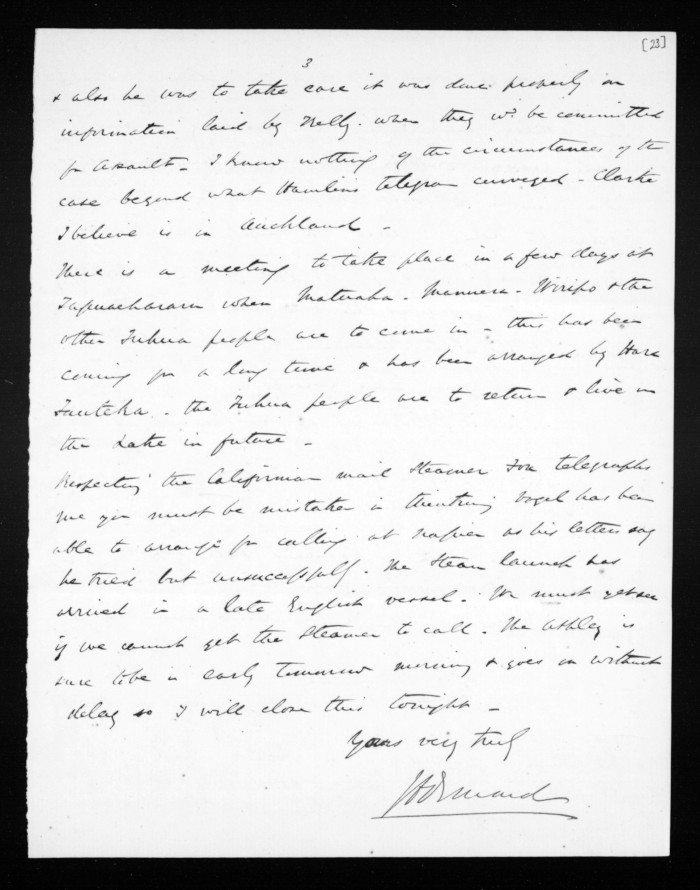 [23]
3
& also he was to take care it was done properly on
information laid by Kelly. when they wd. be committed
for Assault - I know nothing of the circumstances of the
case beyond what Hamlins telegram conveyed - Clarke
I believe is in Auckland -
There is a meeting to take place in a few days at
Tapuaeharuru when Matuaha - Manuera - Wiripo & the
other Tuhua people are to come in - this has been
coming for a long time & has been arranged by Hare
Tauteka - the Tuhua people are to return & live on
the Lake in future -
Respecting the Californian mail Steamer Fox telegraphs
me you must be mistaken in thinking Vogel has been
able to arrange for calling at Napier as his letters say
he tried but unsuccessfully. The Steam launch has
arrived in a late English vessel. We must yet see
if we cannot get the Steamer to call. The Ashley is
sure to be in early tomorrow morning & goes on without
delay so I will close this tonight -
Yours very truly
J D Ormond